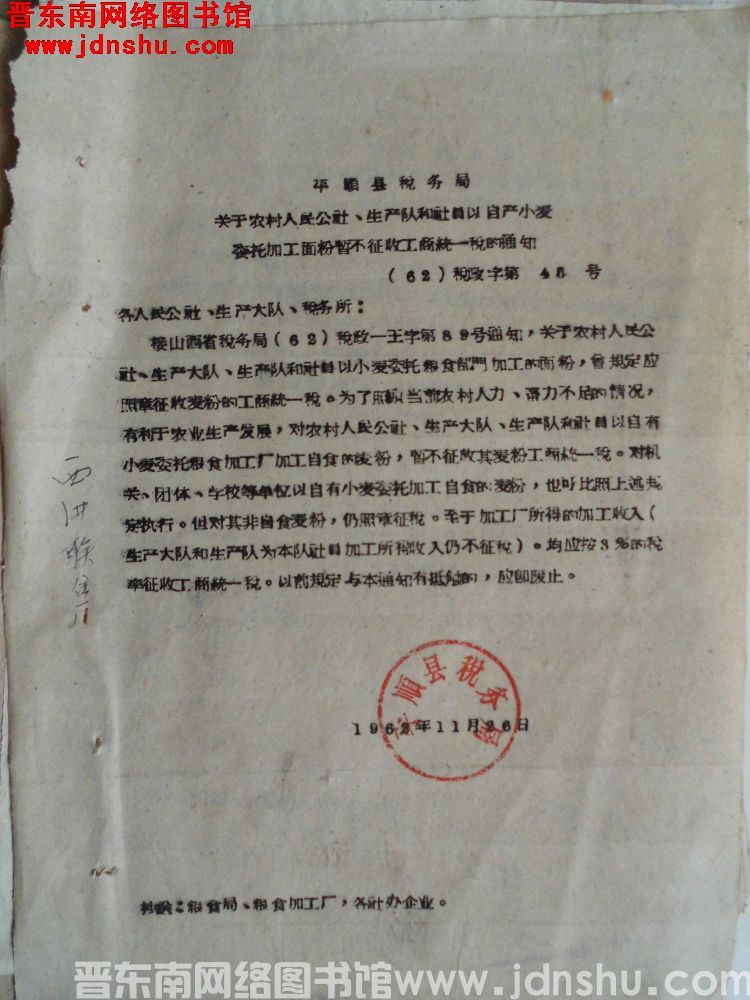 晋东南网络图书馆
www.jdnshu.com
平順县税务局
关于农村人民公社、生产队和社員以自产小麦
委托加工面粉暂不征收工商統一税的通知
(62)税政字第 48 号
各人民公社、生产大队、税务所：
按山西省税务局(62)税政一王字第89号通知，关于农村人民公
社、生产大队、生产队和社員以小麦委托粮食部門加工的面粉，曾规定应
照章征收麦粉的工商統一税。为了照顾当前农村人力、畜力不足的情况，
有利于农业生产发展，对农村人民公社、生产大队、生产队和社員以自有
小麦委托粮食加工厂加工自食的麦粉，暂不征收其麦粉工商統一税。对机
关、团体、学校等单位以自有小麦委托加工自食的麦粉，也可比照上述规
定执行。但对其非自食麦粉，仍照章征税。至于加工厂所得的加工收入(
生产大队和生产队为本队社員加工所得收入仍不征税)。均应按3%的税
率征收工商統一税。以前规定与本通知有抵触的，应即废止。
平順县税务局
1962年11月26日
抄送：粮食局、粮食加工厂，各社办企业。
晋东南网络图书馆www.jdnshu.com